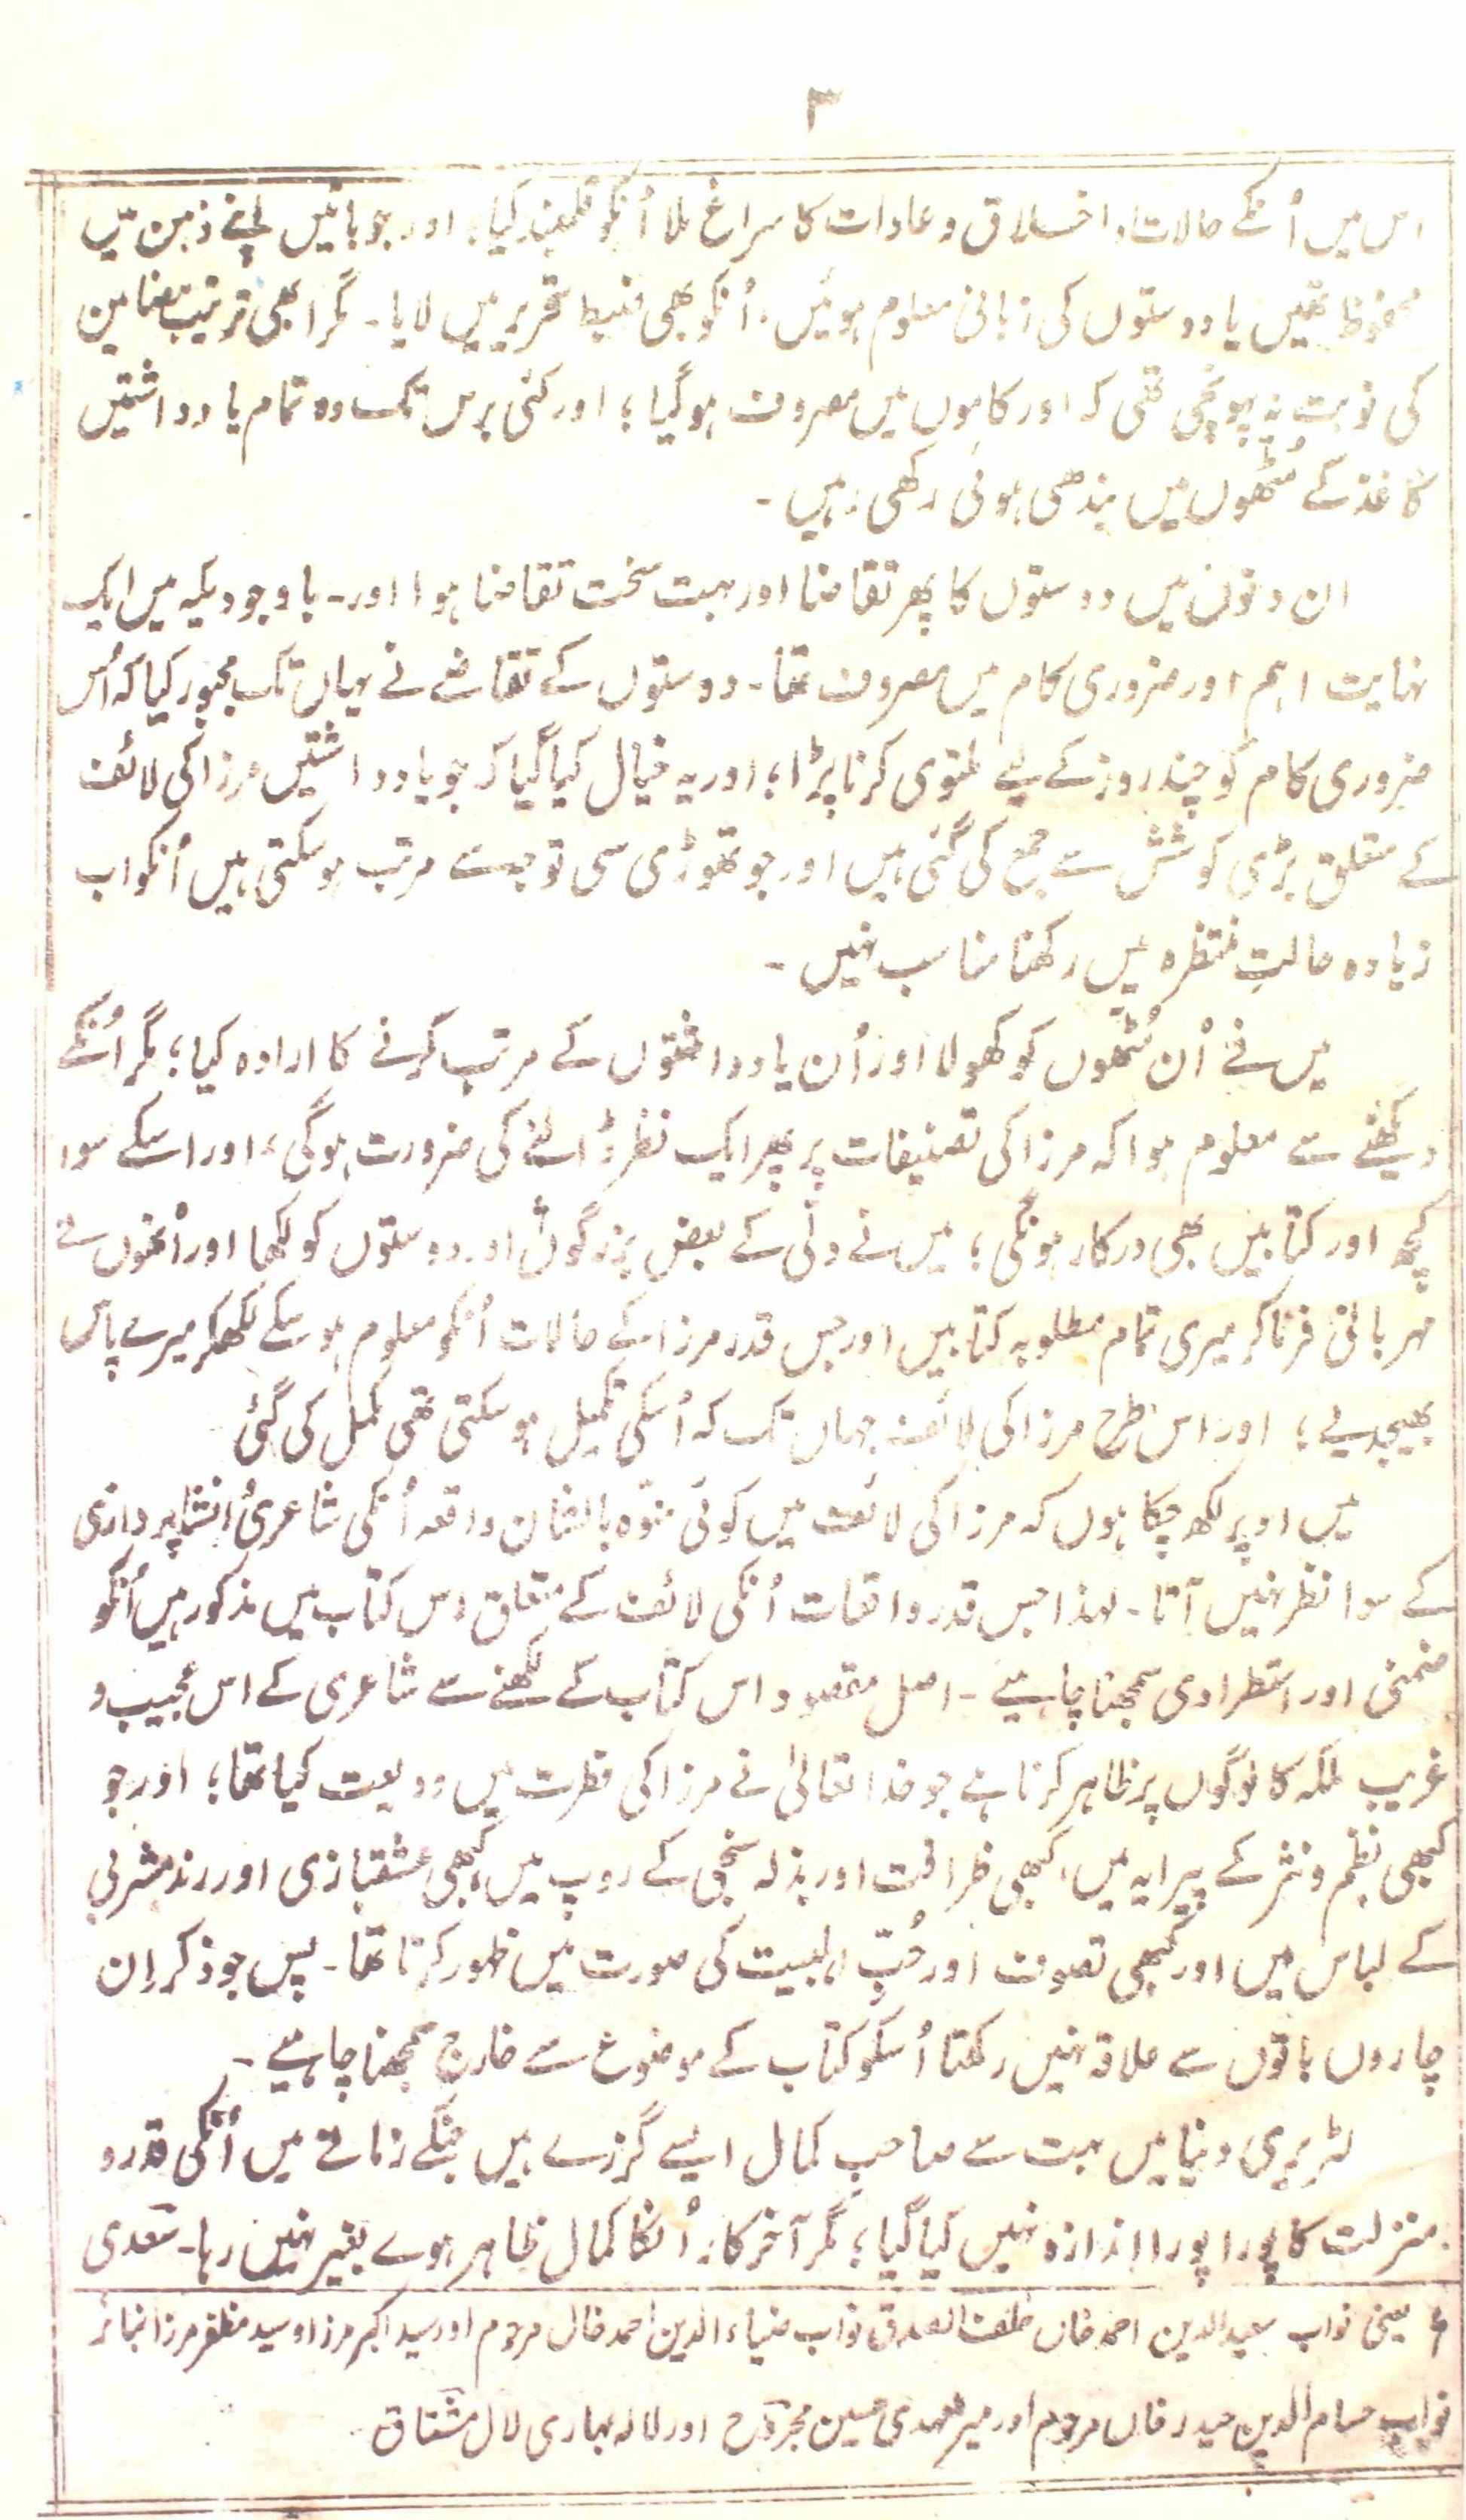 ۳
اس میں اُنکے حالات، اخلاق و عادات کا سراغ ملا اُنکو قلمبند کیا، اور جو باتیں اپنے ذہن میں
محفوظ تھیں یا دوستوں کی زبانی معلوم ہوئیں، اُنکو بھی ضبط تحریر میں لایا۔ مگر ابھی ترتیب مضامین
کی نوبت نہ پہونچی تھی کہ اور کاموں میں مصروف ہوگیا؛ اور کئی برس تک وہ تمام یادداشتیں
کاغذ کے مُٹھوں میں بندھی ہوئی رکھی رہیں۔
ان دنوں میں دوستوں کا پھر تقاضا اور بہت سخت تقاضا ہوا اور۔ باوجودیکہ میں ایک
نہایت اہم اور ضروری کام میں مصروف تھا۔ دوستوں کے تقاضے نے یہاں تک مجبور کیا کہ اُس
ضروری کام کو چند روز کے لیے ملتوی کرنا پڑا؛ اور یہ خیال کیا گیا کہ جو یادداشتیں مرزا کی لائف
کے متعلق بڑی کوشش سے جمع کی گئی ہیں اور جو تھوڑی سی توجہ سے مرتب ہوسکتی ہیں اُنکو اب
زیادہ حالتِ منتظرہ میں رکھنا مناسب نہیں۔
میں نے اُن مُٹھوں کو کھولا اور اُن یادداشتوں کے مرتب کرنے کا ارادہ کیا؛ مگر اُنکے
دیکھنے سے معلوم ہوا کہ مرزا کی تصنیفات پر پھر ایک نظر ڈالنے کی ضرورت ہوگی، اور اسکے سوا
کچھ اور کتابیں بھی درکار ہونگی؛ میں نے دلّی کے بعض بزرگوں اور دوستوں کو لکھا اور اُنھوں نے
مہربانی فرماکر میری تمام مطلوبہ کتابیں اور جس قدر مرزا کے حالات اُنکو معلوم ہوسکے لکھکر میرے پاس
بھیجدیے؛ اور اس طرح مرزا کی لائف جہاں تک کہ اُسکی تکمیل ہوسکتی تھی مکمل کی گئی
میں اوپر لکھ چکا ہوں کہ مرزا کی لائف میں کوئی مہتم بالشان واقعہ اُنکی شاعری و انشاپردازی
کے سوا نظر نہیں آتا۔ لہذا جس قدر واقعات اُنکی لائف کے متعلق اس کتاب میں مذکور ہیں اُنکو
ضمنی اور استطرادی سمجھنا چاہیے۔ اصل مقصود اس کتاب کے لکھنے سے شاعری کے اس عجیب و
غریب ملکہ کا لوگوں پر ظاہر کرنا ہے جو خدا تعالیٰ نے مرزا کی فطرت میں ودیعت کیا تھا؛ اور جو
کبھی نظم و نثر کے پیرایہ میں، کبھی ظرافت اور بذلہ سنجی کے روپ میں، کبھی عشقبازی اور رند مشربی
کے لباس میں اور کبھی تصوف اور حُبِّ اہلبیت کی صورت میں ظہور کرتا تھا۔ پس جو ذکر اِن
چاروں باتوں سے علاقہ نہیں رکھتا اُسکو کتاب کے موضوع سے خارج سمجھنا چاہیے۔
لٹریری دنیا میں بہت سے صاحبِ کمال ایسے گزرے ہیں جنکے زمانے میں اُنکی قدر و
منزلت کا پورا پورا اندازہ نہیں کیا گیا؛ مگر آخرکار اُنکا کمال ظاہر ہوے بغیر نہیں رہا۔ سعدی
یعنی نواب سعید الدین احمد خاں خلف الصدق نواب ضیاء الدین احمد خاں مرحوم اور سید اکبر مرزا و سید مظفر مرزا نبائر
نواب حسام الدین حیدر خاں مرحوم اور میر مہدی حسین مجروح اور لالہ بہاری لال مشتاق